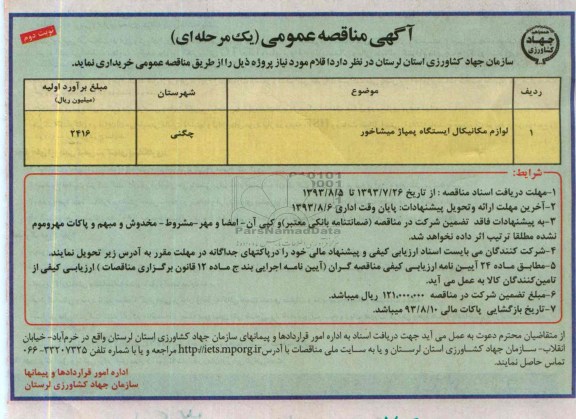 آگهی مناقصه عمومی (یک مرحله‌ای)
نوبت دوم
جهاد کشاورزی
سازمان جهاد کشاورزی استان لرستان در نظر دارد اقلام مورد نیاز پروژه ذیل را از طریق مناقصه عمومی خریداری نماید.
ردیف موضوع شهرستان مبلغ برآورد اولیه (میلیون ریال)
۱ لوازم مکانیکال ایستگاه پمپاژ میشاخور چگنی ۲۴۱۶
شرایط:
۱-مهلت دریافت اسناد مناقصه : از تاریخ ۱۳۹۳/۷/۲۶ تا ۱۳۹۳/۸/۵
۲-آخرین مهلت ارائه وتحویل پیشنهادات: پایان وقت اداری ۱۳۹۳/۸/۶
۳-به پیشنهادات فاقد تضمین شرکت در مناقصه (ضمانتنامه بانکی معتبر)و کپی آن - امضا و مهر-مشروط - مخدوش و مبهم و پاکات مهروموم
نشده مطلقا ترتیب اثر داده نخواهد شد.
۴-شرکت کنندگان می بایست اسناد ارزیابی کیفی و پیشنهاد مالی خود را درپاکتهای جداگانه در مهلت مقرر به آدرس زیر تحویل نمایند.
۵-مطابق ماده ۲۴ آیین نامه ارزیابی کیفی مناقصه گران (آیین نامه اجرایی بند ج ماده ۱۲ قانون برگزاری مناقصات ) ارزیابی کیفی از
تامین‌کنندگان کالا به عمل می آید.
۶-مبلغ تضمین شرکت در مناقصه ۱۲۱.۰۰۰.۰۰۰ ریال میباشد.
۷-تاریخ بازگشایی پاکات مالی ۹۳/۸/۱۰ میباشد.
ParsNamadData
از متقاضیان محترم دعوت به عمل می آید جهت دریافت اسناد به اداره امور قراردادها و پیمانهای سازمان جهاد کشاورزی استان لرستان واقع در خرم‌آباد- خیابان
انقلاب- سازمان جهاد کشاورزی استان لرستان و یا به سایت ملی مناقصات با آدرس http://iets.mporg.ir مراجعه و یا با شماره تلفن ۳۳۲۰۷۳۲۵-۰۶۶
تماس حاصل نمایند.
اداره امور قراردادها و پیمانها
سازمان جهاد کشاورزی لرستان